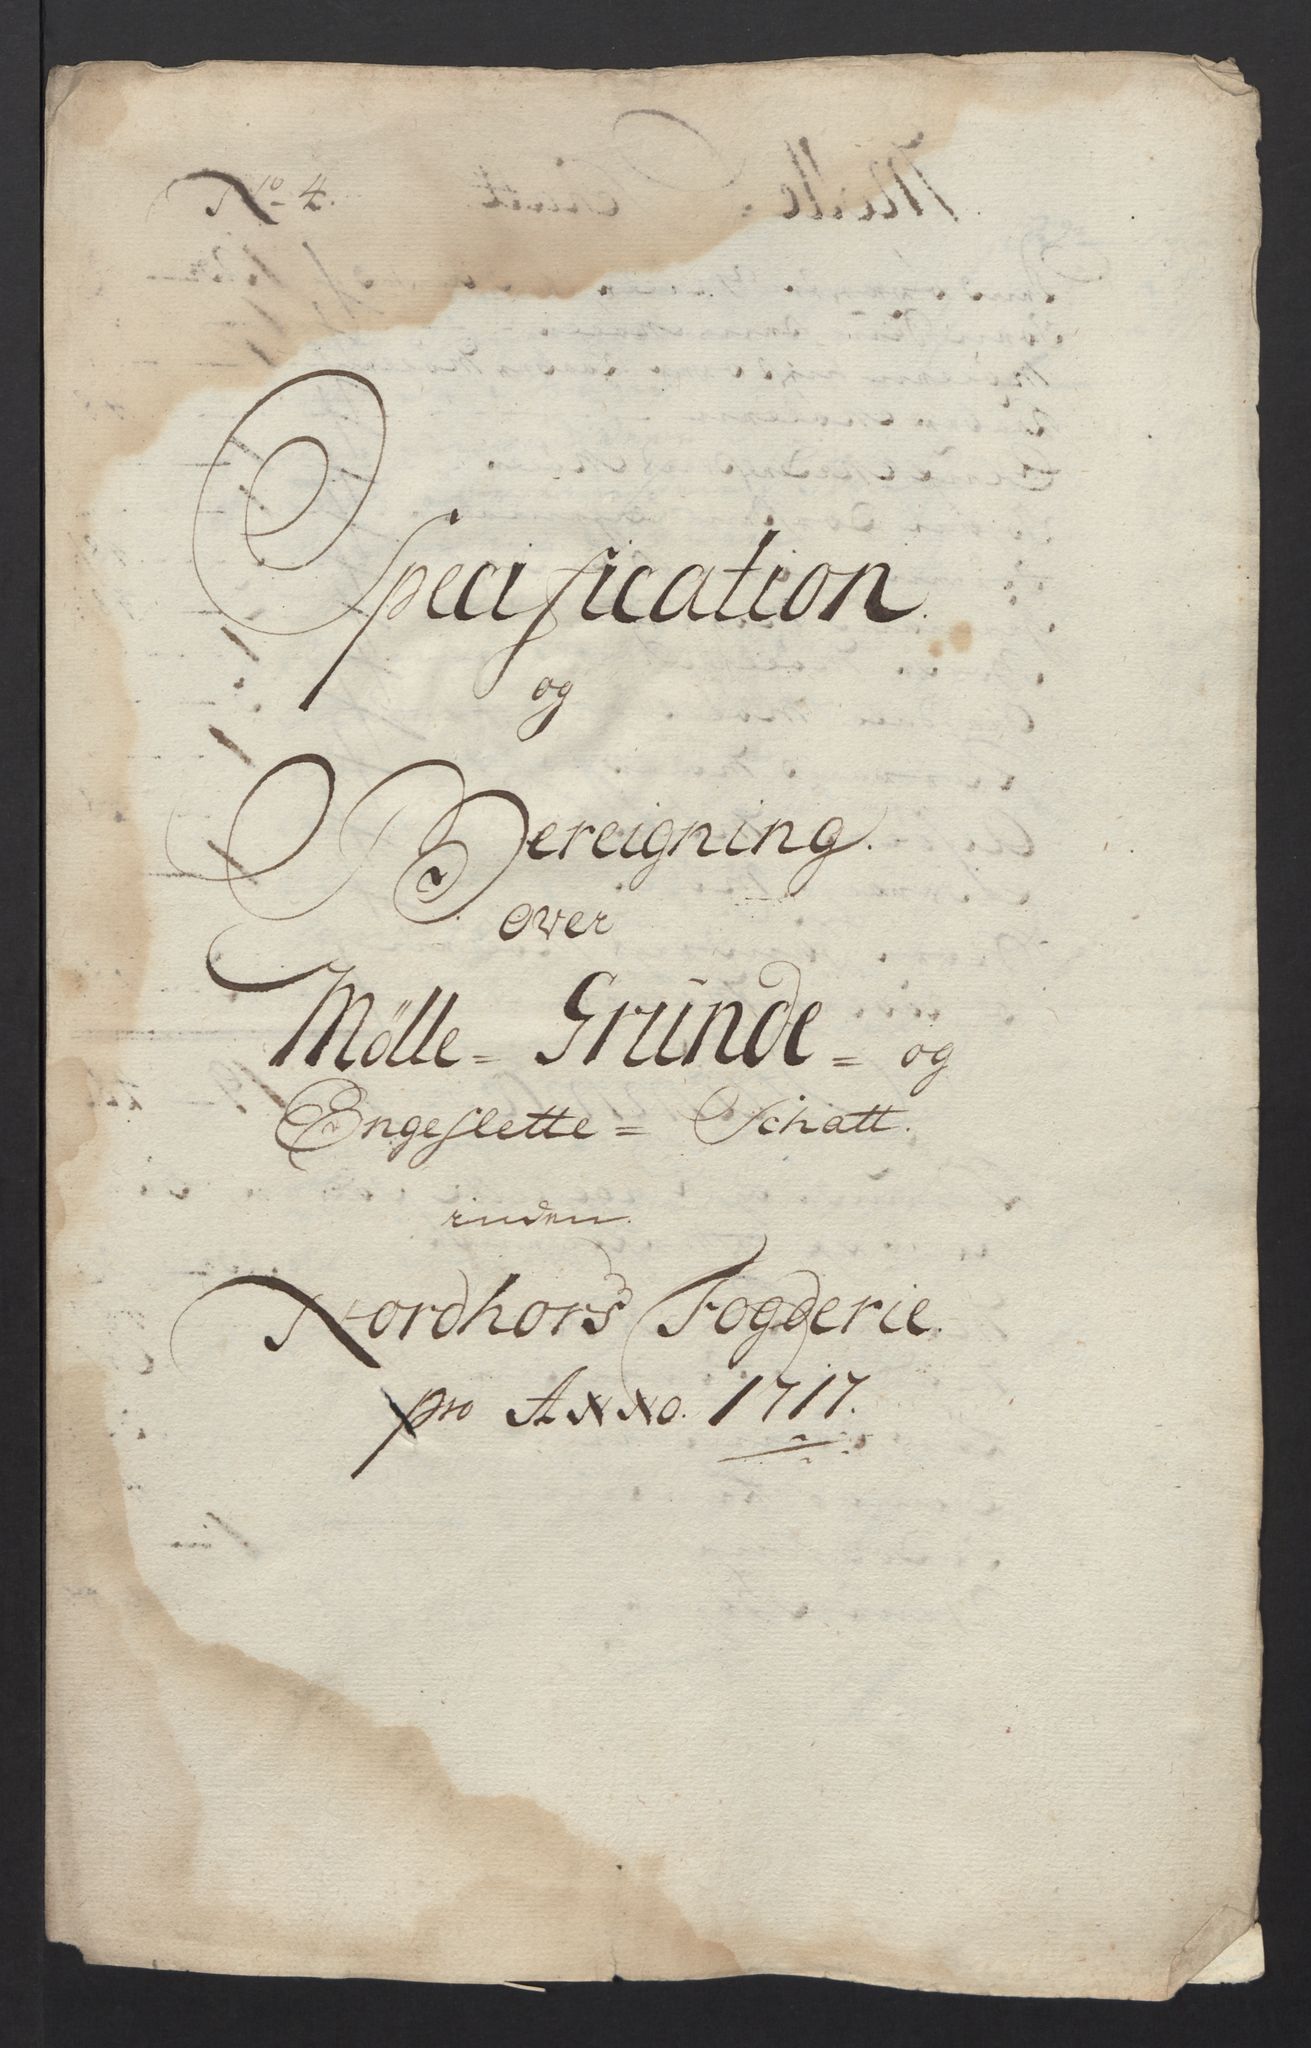 No 4.
Specification
og
Bereigning.
over
Mölle= Gründe= og
Engeslette= Schatt.
inden
Nordhors Fogderie.
pro Anno. 1717.